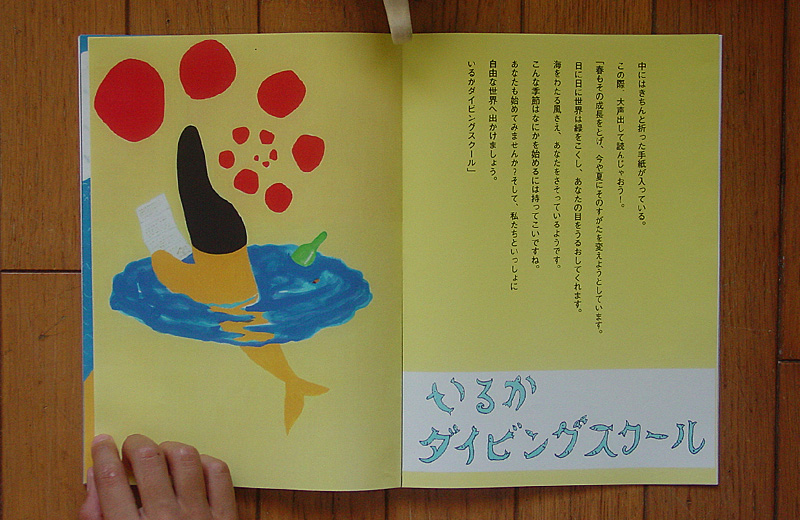 中にはきちんと折った手紙が入っている。
この際、大声出して読んじゃおう！。
「春もその成長をとげ、今や夏にそのすがたを変えようとしています。
日に日に世界は緑をこくし、あなたの目をうるおしてくれます。
海をわたる風さえ、あなたをさそっているようです。
こんな季節はなにかを始めるには持ってこいですね。
あなたも始めてみませんか？そして、私たちといっしょに
自由な世界へ出かけましょう。
いるかダイビングスクール」
いるか
ダイビングスクール